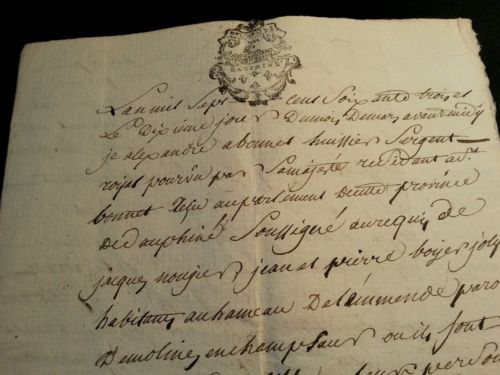 DAUPHINE
Lan mil sept cent soixante trois et
Le dixiéme jour du mois de mars avant midy
je alexandre abonnet huissier sergent
royal pourvu par sa majesté residant a st
bonnet reçu au parlement de cette province
de dauphiné soussigné au requis de
jacques nougier jean et pierre boyer joly
habitans au hameau de paro
de moline en champsaur ou ils font
leurs